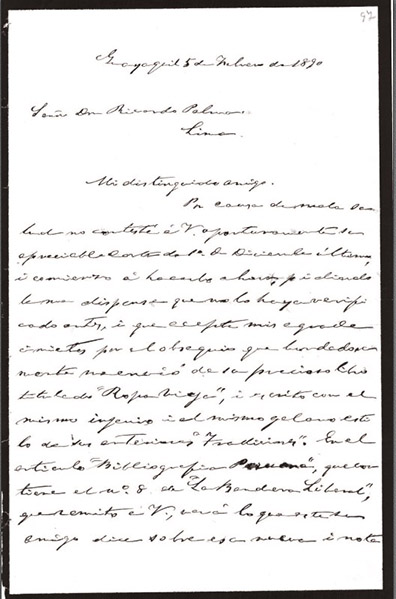 97
Guayaquil 5 de Febrero de 1890
Señor Don Ricardo Palma
Lima
Mi distinguido amigo.
Por causa de mala sa
lud no contesté á V. oportunamente su
apreciable carta de 1º de Diciembre último,
i comienzo á hacerlo ahora, pidiendo
le me dispense que no lo haya verifi
cado antes, i que acepte mis agrade
cimientos por el obsequio que bondadosa
mente me envió de su precioso libro
titulado "Ropa Vieja", i escrito con el
mismo ingenio i el mismo galano esti
lo de sus anteriores "Tradiciones". En el
artículo "Bibliografia Peruana", que con
tiene el nº 8 de "La Bandera Liberal",
que remito á V., verá lo que este su
amigo dice sobre esa nueva i nota